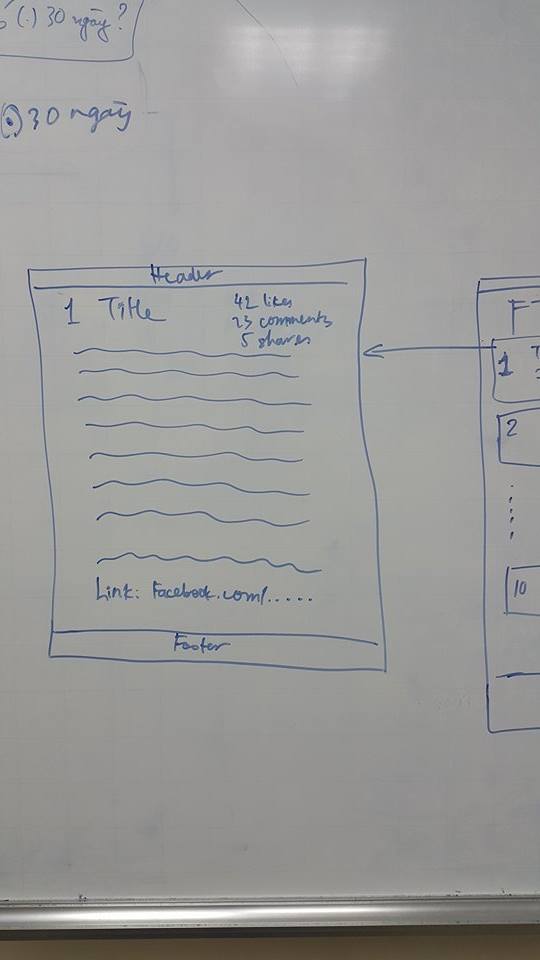 (.) 30 ngày?
30 ngày
Header
1 Title
42 likes
23 comments
5 shares
Link: Facebook.com/.....
Footer
F
1
2
10